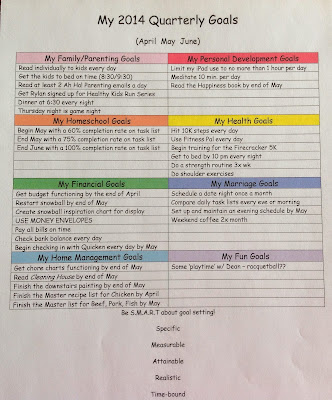 My 2014 Quarterly Goals
(April May June)
My Family/Parenting Goals
Read individually to kids every day
Get the kids to bed on time (8:30/9:30)
Read at least 2 Ah Ha! Parenting emails a day
Get Rylan signed up for Healthy Kids Run Series
Dinner at 6:30 every night
Thursday night is game night
My Personal Development Goals
Limit my iPad use to no more than 1 hour per day
Meditate 10 min per day
Read the Happiness book by end of May
My Homeschool Goals
Begin May with a 60% completion rate on task list
End May with a 75% completion rate on task list
End June with a 100% completion rate on task list
My Health Goals
Hit 10K steps every day
Use Fitness Pal every day
Begin training for the Firecracker 5K
Get to bed by 10 pm every night
Do a strength routine 3x wk
Do shoulder exercises
My Financial Goals
Get budget functioning by the end of April
Restart snowball by end of May
Create snowball inspiration chart for display
USE MONEY ENVELOPES
Pay all bills on time
Check bank balance every day
Begin checking in with Quicken every day by May
My Marriage Goals
Schedule a date night once a month
Compare daily task lists every eve or morning
Set up and maintain an evening schedule by May
Weekend coffee 2x month
My Home Management Goals
Get chore charts functioning by end of May
Read Cleaning House by end of May
Finish the downstairs painting by end of May
Finish the Master recipe list for Chicken by April
Finish the Master list for Beef, Pork, Fish by May
My Fun Goals
Some 'playtime' w/ Dean - racquetball??
Be S.M.A.R.T about goal setting!
Specific
Measurable
Attainable
Realistic
Time-bound